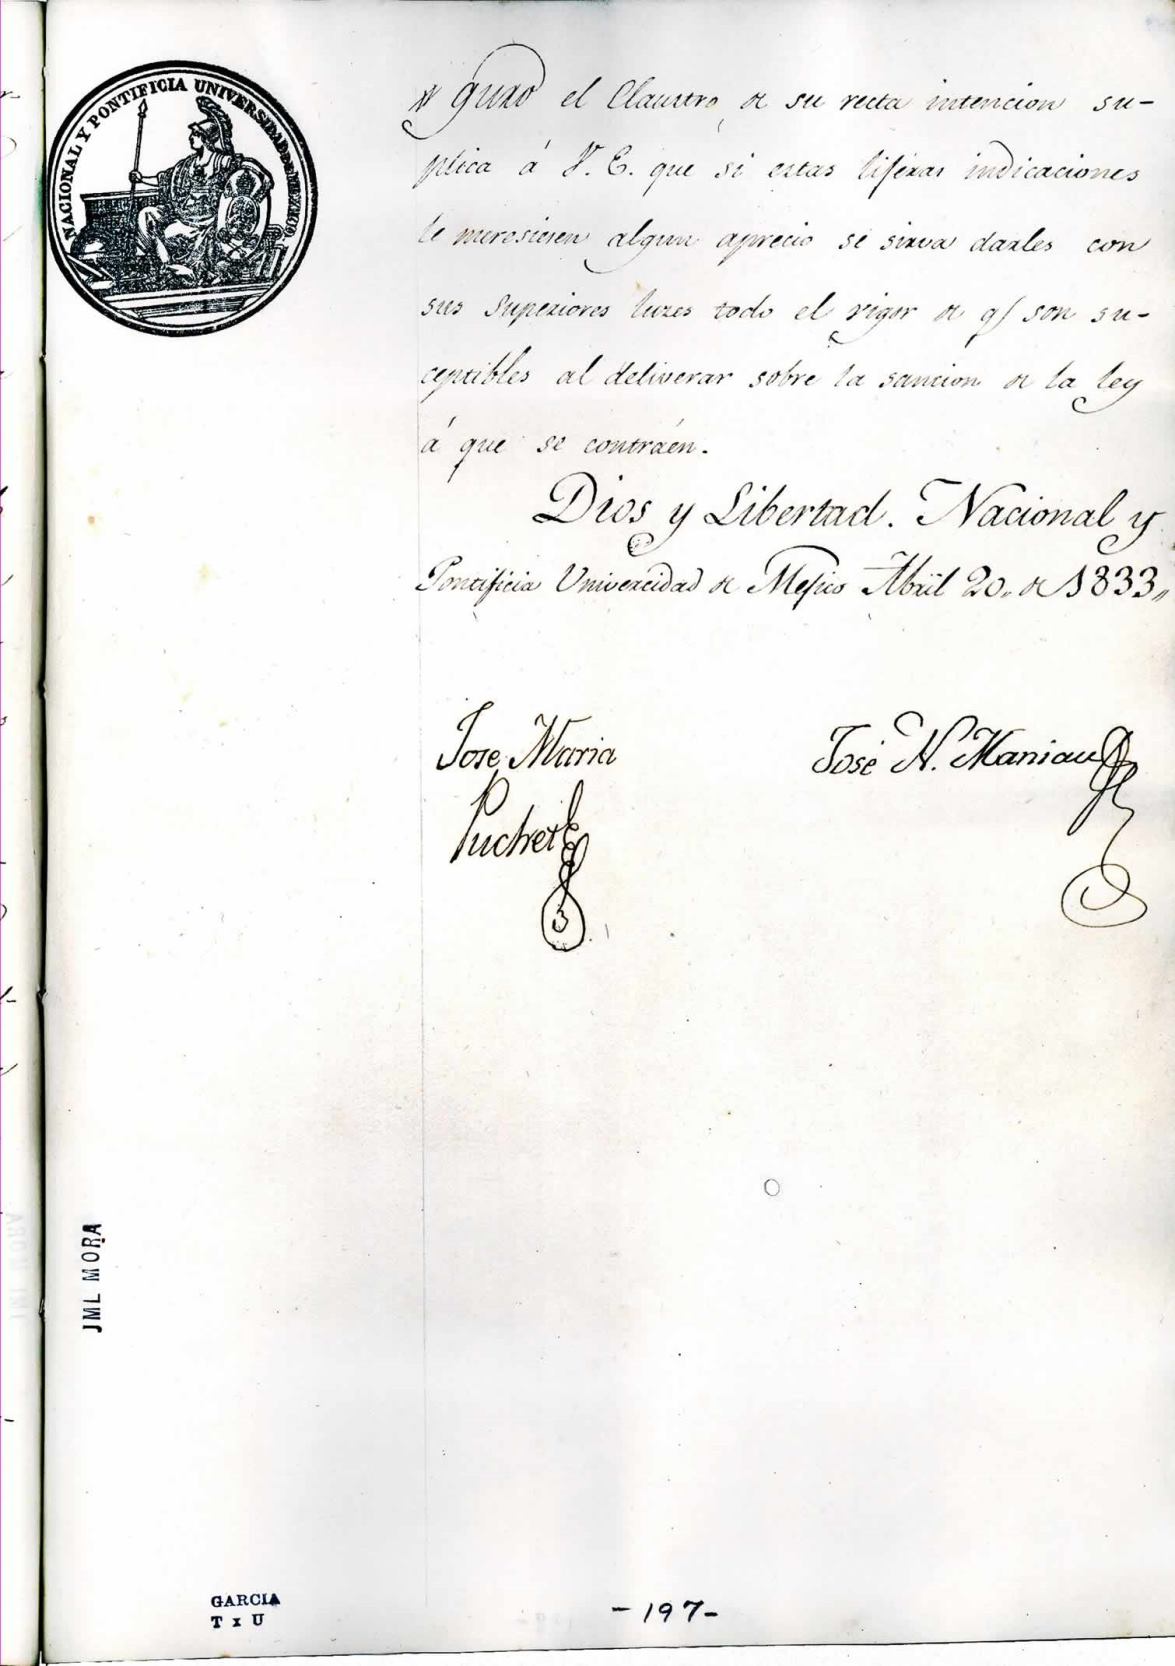 NACIONAL Y PONTIFICIA UNIVERSIDAD DE MEXICO
guro el Claustro de su recta intencion su-
plica á V. E. que si estas liféras indicaciones
le meresiesen algun aprecio se sirva darles con
sus Superiores luzes todo el vigor de q/ son su-
ceptibles al deliverar sobre la sancion de la ley
á que se contráen.
Dios y Libertad. Nacional y
Pontificia Univercidad de Mejico Abril 20. de 1833,,
Jose Maria
Puchet
José N. Maniau
JML MORA
GARCIA
T x U
-197-